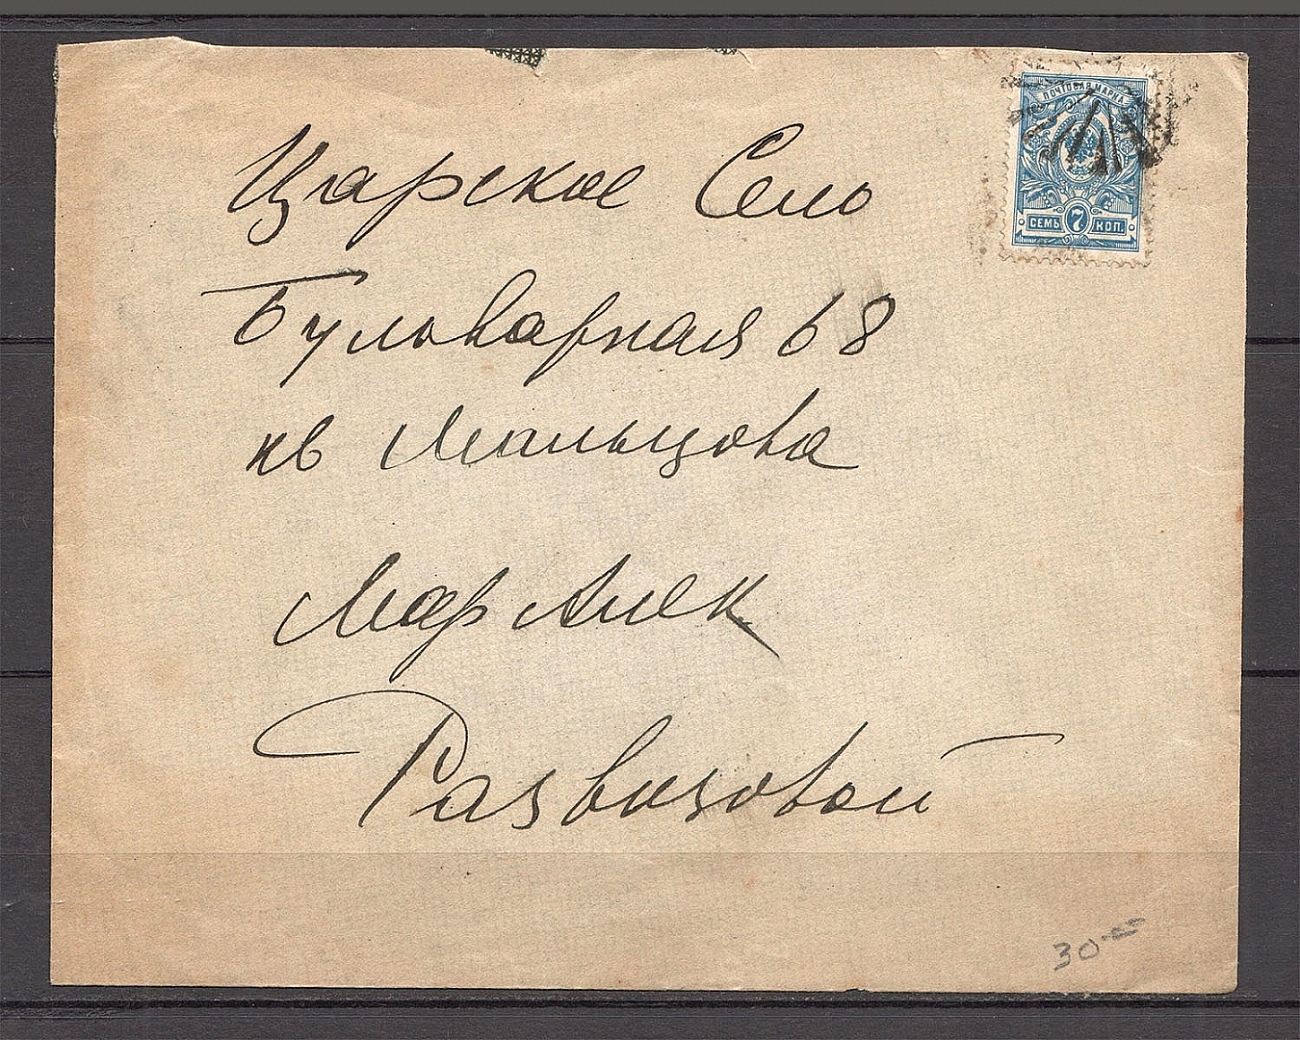 ПОЧТОВАЯ МАРКА
СЕМЬ 7 КОП.
Царское Село
Бульварная 68
кв Мальцова
Мар Алек
Развозовой
30